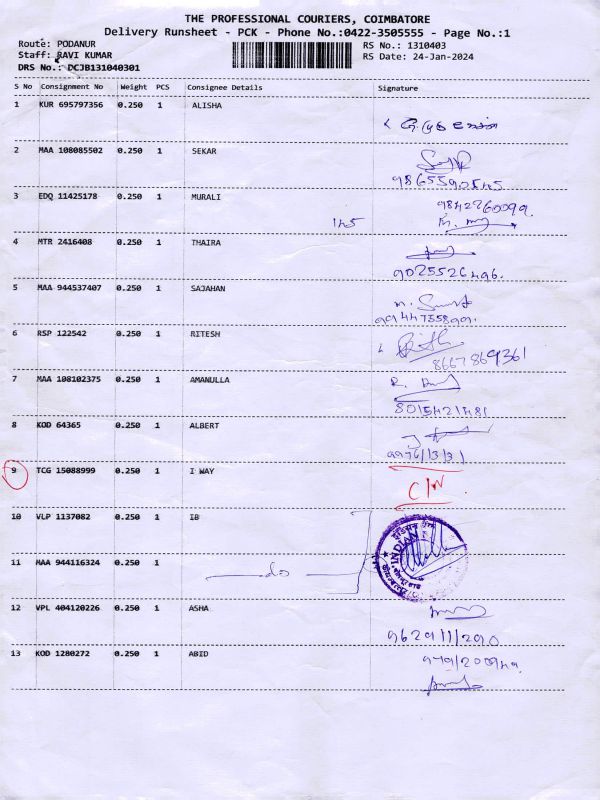 THE PROFESSIONAL COURIERS, COIMBATORE
Delivery Runsheet - PCK - Phone No.:0422-3505555 - Page No.:1
Route: PODANUR
RS No.: 1310403
Staff: RAVI KUMAR
RS Date: 24-Jan-2024
DRS No.: DCJB131040301
S No Consignment No Weight PCS Consignee Details Signature
1 KUR 695797356 0.250 1 ALISHA
2 MAA 108085502 0.250 1 SEKAR
9865590545
3 EDQ 11425178 0.250 1 MURALI
9842760099.
145
4 MTR 2416408 0.250 1 THAIRA
9025526496.
5 MAA 944537407 0.250 1 SAJAHAN
6 RSP 122542 0.250 1 RITESH
8667869361
7 MAA 108102375 0.250 1 AMANULLA
8015421481
8 KOD 64365 0.250 1 ALBERT
9 TCG 15088999 0.250 1 I WAY
10 VLP 1137082 0.250 1 IB
INDIAN
11 MAA 944116324 0.250 1
do
12 VPL 404120226 0.250 1 ASHA
13 KOD 1280272 0.250 1 ABID